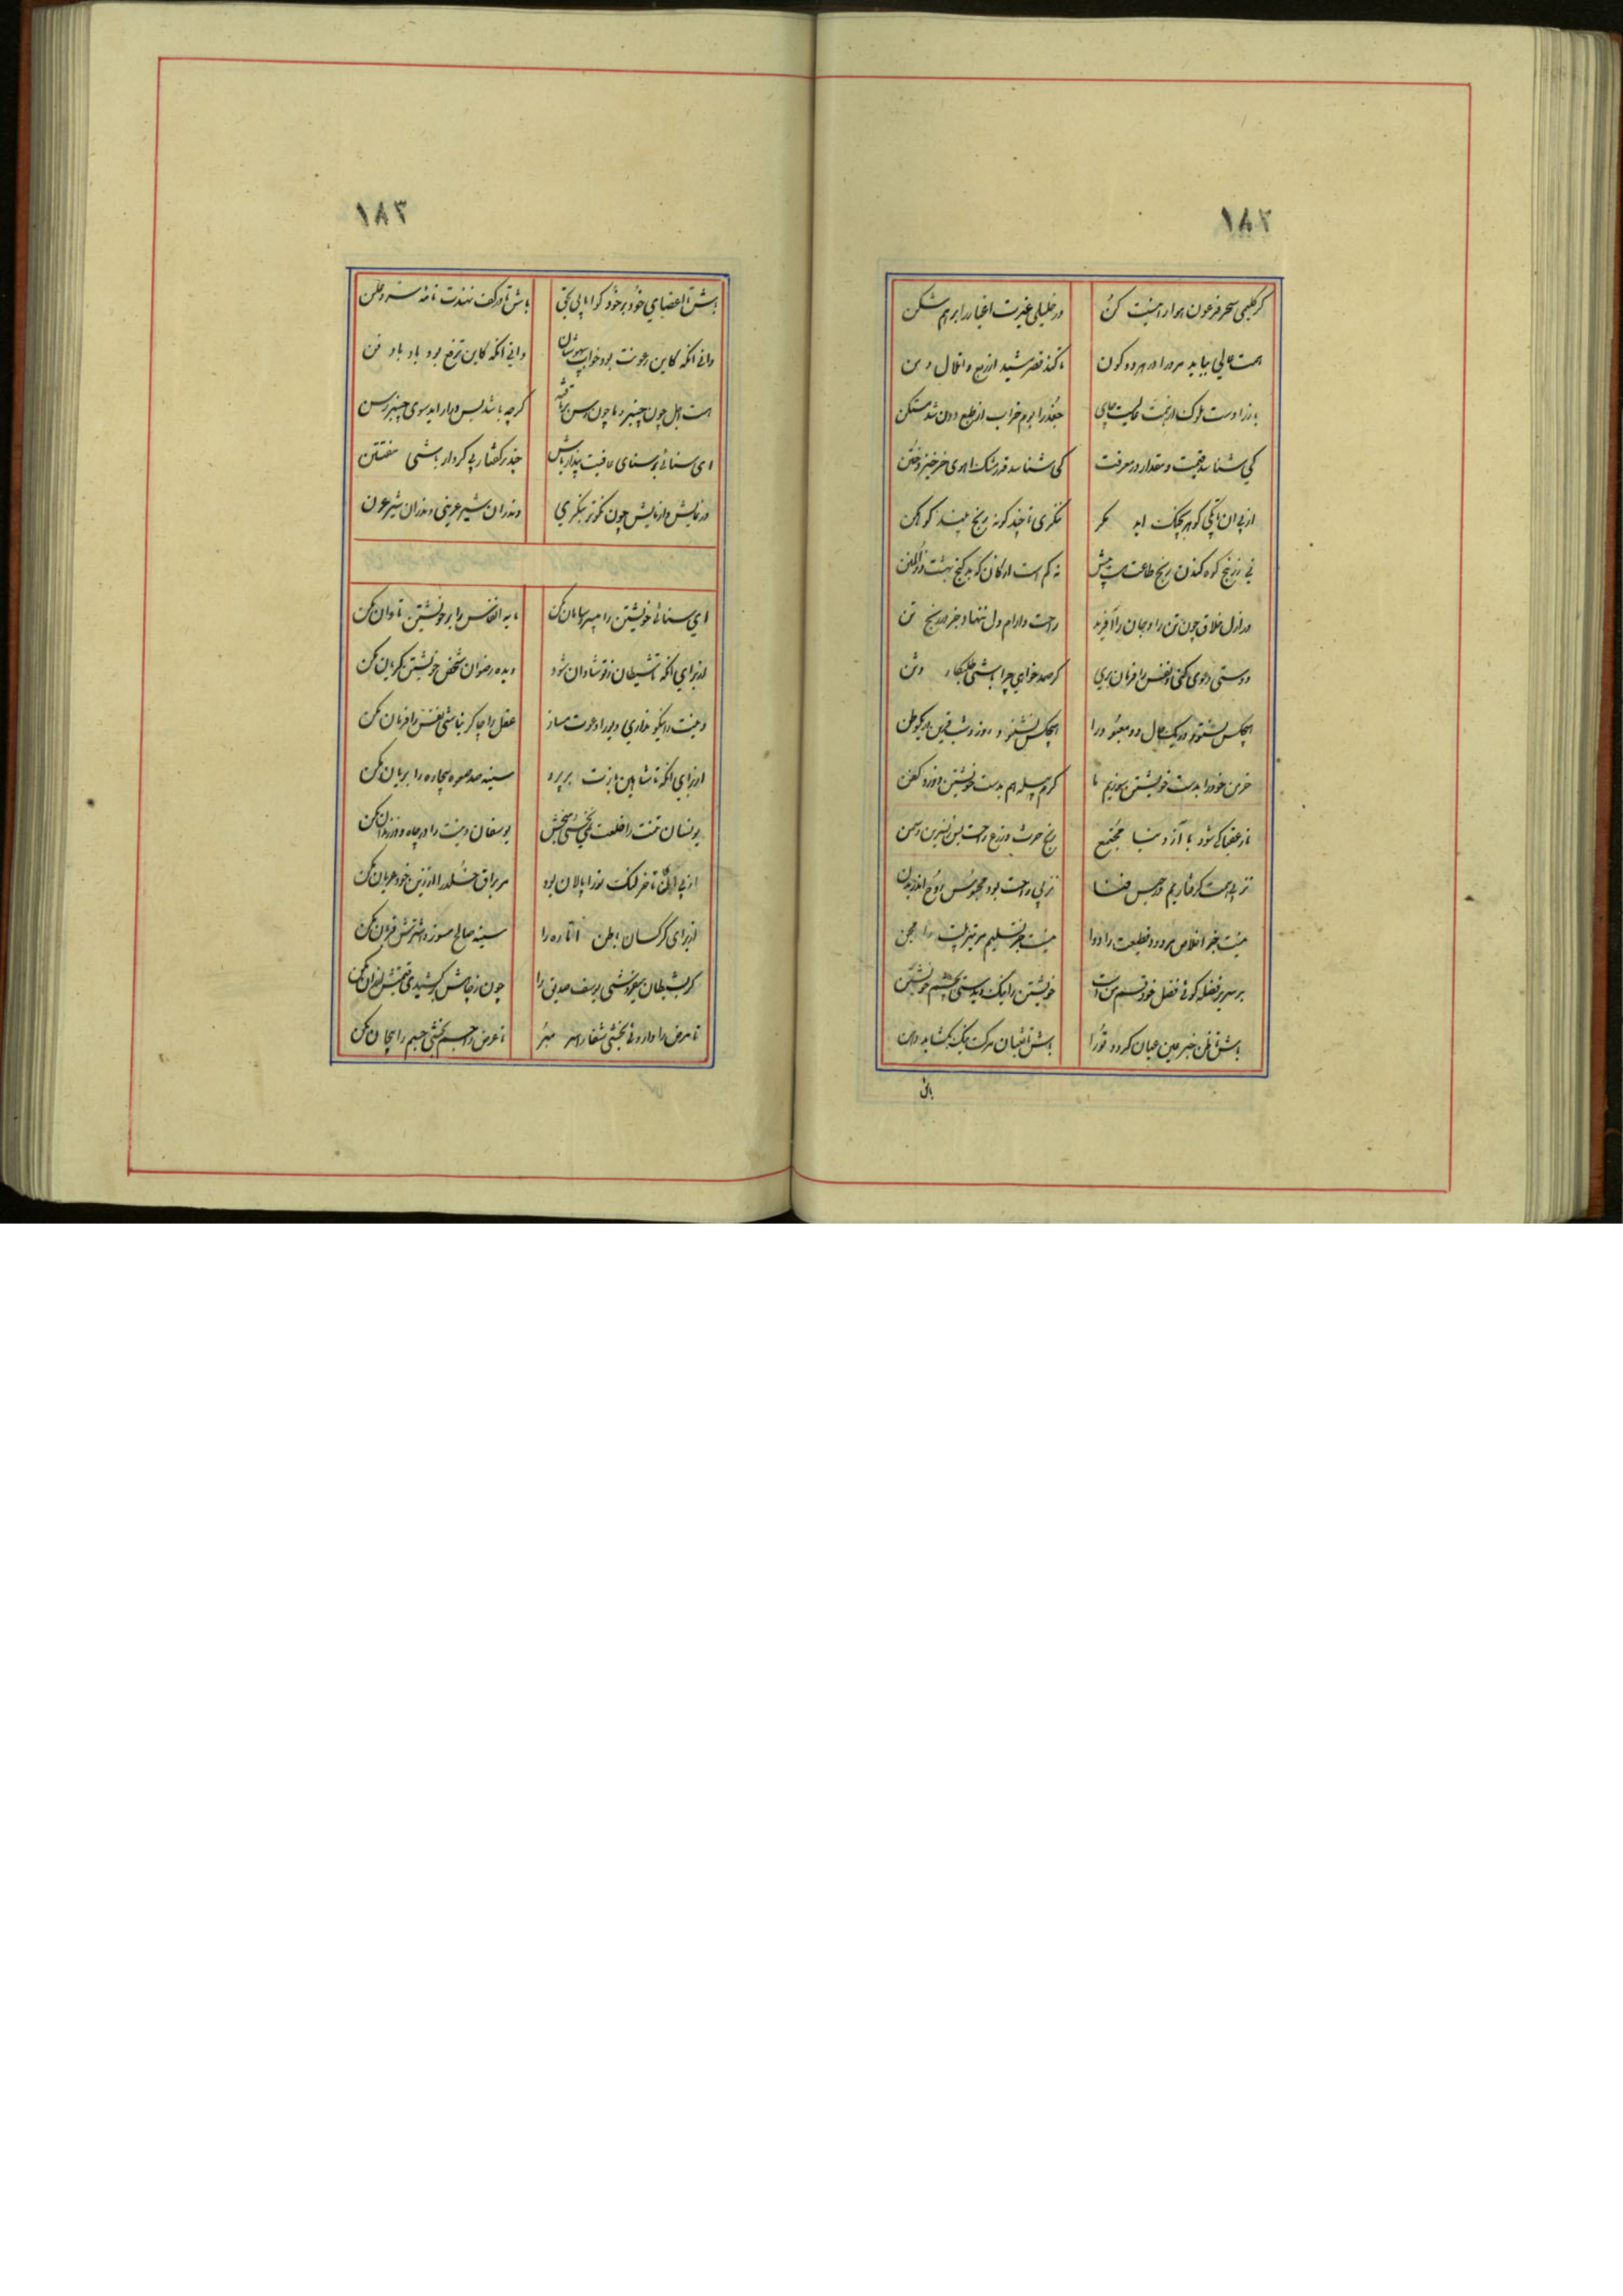 گر کلیمی سحر فرعون هوا را نیست کن
ور خلیلی غیرت اغیار را برهم شکن
همت عالی بباید مرد را در هر دو کون
تا کند قصر مشید از ربع و اطلال و دمن
باز را دست ملوک از همت عالیست جای
جغد را بوم خراب از طبع دون شد مسکن
کی شناسد قیمت و مقدار در معرفت
کی شناسد قدر مشک اهوی خرخیز و ختن
از پی ان تا یکی گوهر بچنگ اید مگر
ننگری تا چند گونه رنج بیند کوهکن
نی ز رنج کوه کندن رنج طاعت هست بیش
نه کم است از کان کوه گنج بهشت ذوالمنن
در ازل خلاق چون تن را و جان را آفرید
راحت و ارام دل ننهاد جز در رنج تن
دوستی دعوی کنی و نفس را فرمان بری
گر صمد خواهی چرا باشی طلبکار وثن
هیچکس نشنود در یک حال دو معبود را
هیچکس نشنود روز و شب قرین در یک وطن
خرمن خود را بدست خویشتن سوزیم ما
کرم پیله هم بدست خویشتن دوزد کفن
ناز عقبا کی شود با آز دنیا مجتمع
رنج حرث و زرع راحت بس
تن پی همت گرفتاریم در حبس فنا
تن پی راحت بود محبوس روح اندر بدن
نیست جز اخلاص مر درد قطیعت را دوا
نیست جز تسلیم مر تیر بلیت را مجن
بر سریر فضله گوئی فضل خود قسم من است
خویشتن را نیک دیدستی بچشم خویشتن
باش تا ظن خبر عین عیان گردد تو را
باش تا ثعبان مرگت نیک بگشاید دهن
باش تا اعضای خود بر خود گوا یابی بحق
باش تا در کف نهندت نامه سر و علن
دانی انگه کاین رعونت بود خواب بیهشان
دانی انگه کاین ترفع بود باد باد فن
هست اجل چون چنبر و ما چون رسن سر تافته
گرچه باشد بس دراز اید سوی چنبر رسن
ای سنائی بر سنای عافیت بیدار باش
چند بر گفتار بی کردار باشی مفتتن
در نمایش وازمایش چون نکوتر بنگری
وندران شیر عرینی وندران شیر عرن
ای سنائی خویشتن را بی سر و سامان مکن
مایه انفاس را بر خویشتن تاوان مکن
از برای انکه تا شیطان ز تو شادان شود
دیده رضوان شخص خویشتن گریان مکن
دینت را نیکو نداری دیو را دعوت مساز
عقل را چاکر نباشی نفس را فرمان مکن
از برای انکه تا شاهین بازت بر پرد
سینه صد صعوه بیچاره را بریان مکن
یونسان تنت را خلعت مبخش
یوسفان دینت را در چاه و در زندان مکن
از پی انکه تا خر لنگ تو را پالان بود
مر براق خلد را از زین خود عریان مکن
از برای کرکسان بطن اماره را
سینه صالح مسوز و اشترش قربان مکن
گر بشیطان میفروشی یوسف صدیق را
چون ز چاهش برکشیدی قیمتش ارزان مکن
تا مرض را داروئی بخشی شفا را سر مبر
تا عرض را جسم بخشی جسم را بیجان مکن